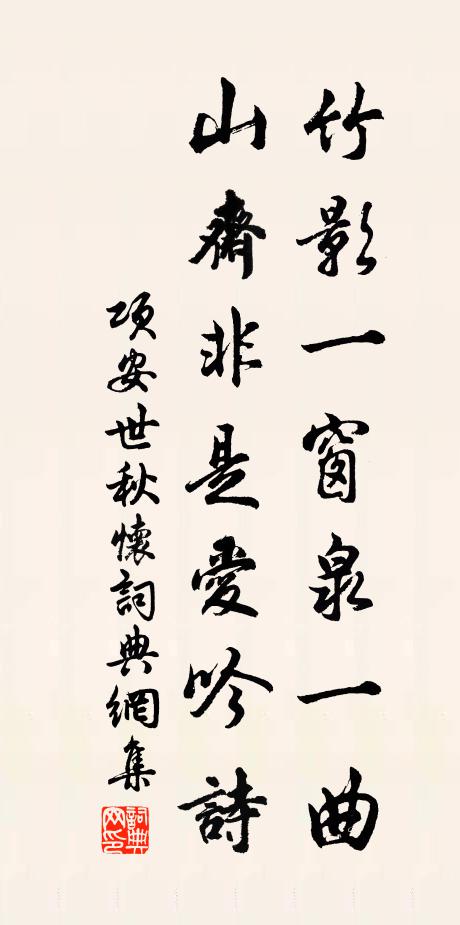 竹影一窗泉一曲
山齋非是愛吟詩
項安世秋懷詞典網集
詞典網印